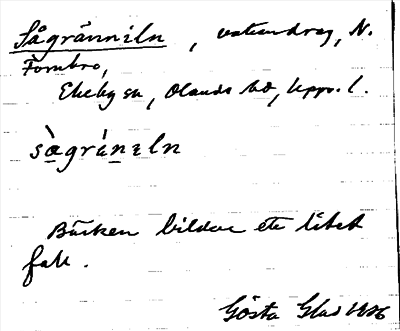 Sågränniln, vattendrag, N.
Fornbro,
Ekeby sn, Olands hd, Upps. l.
sågräniln
Bäcken bildar ett litet
fall.
Gösta Glad